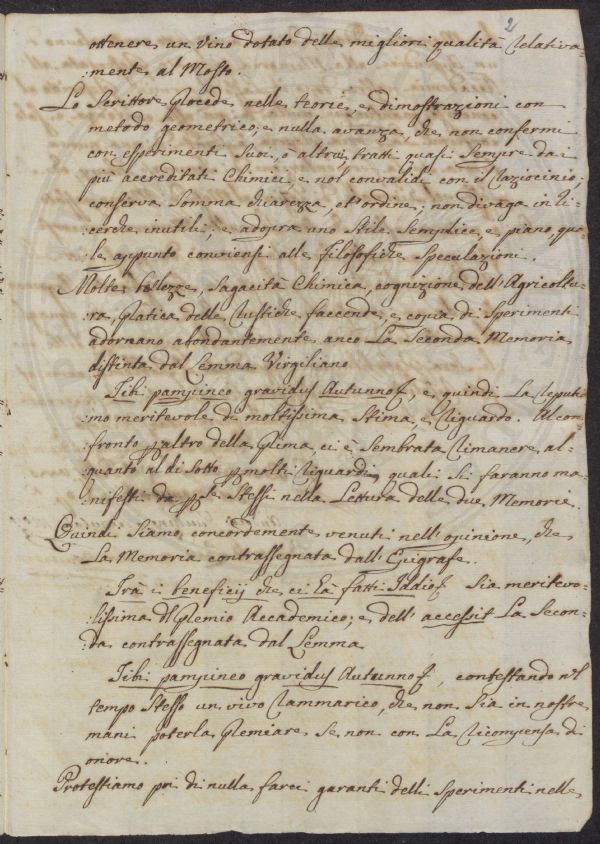 2
ottenere un vino dotato delle migliori qualità relativa-
:mente al Mosto.
Lo Scrittore procede nelle teorie, e dimostrazioni con
metodo geometrico, e nulla avanza, che non confermi
con esperimenti suoi, ò altrui tratti quasi sempre dai
più accreditati Chimici, e nol convalidi con il raziocinio;
conserva somma chiarezza, et ordine; non divaga in ri-
:cerche inutili; e adopra uno stile semplice, e piano, qua-
:le appunto conviensi alle filosofiche speculazioni.
Molte bellezze, sagacità Chimica, cognizione dell'Agricoltu-
ra pratica delle rustiche faccende, e copia di sperimenti
adornano abondantemente anco la seconda Memoria
distinta dal Lemma Virgiliano
Tibi pampineo gravidus Autunno, e quindi la reputia-
mo meritevole di moltissima stima, e riguardo. Al con-
fronto altro della prima, ci è sembrata rimanere al-
quanto al di sotto molti riguardi quali si faranno ma-
nifesti da stessi nella lettura delle due Memorie.
Quindi siamo concordemente venuti nell'opinione, che
la Memoria contrassegnata dall'Epigrafe.
Trà i beneficij che ci hà fatti Iddio sia meritevo-
lissima del premio Accademico; e dell'accessit la secon-
:da contrassegnata dal Lemma
Tibi pampineo gravidus Autunno, contestando nel
tempo stesso un vivo rammarico, che non sia in nostre
mani poterla premiare se non con la ricompensa di
onore.
Protestiamo poi di nulla farci garanti delli sperimenti nelle